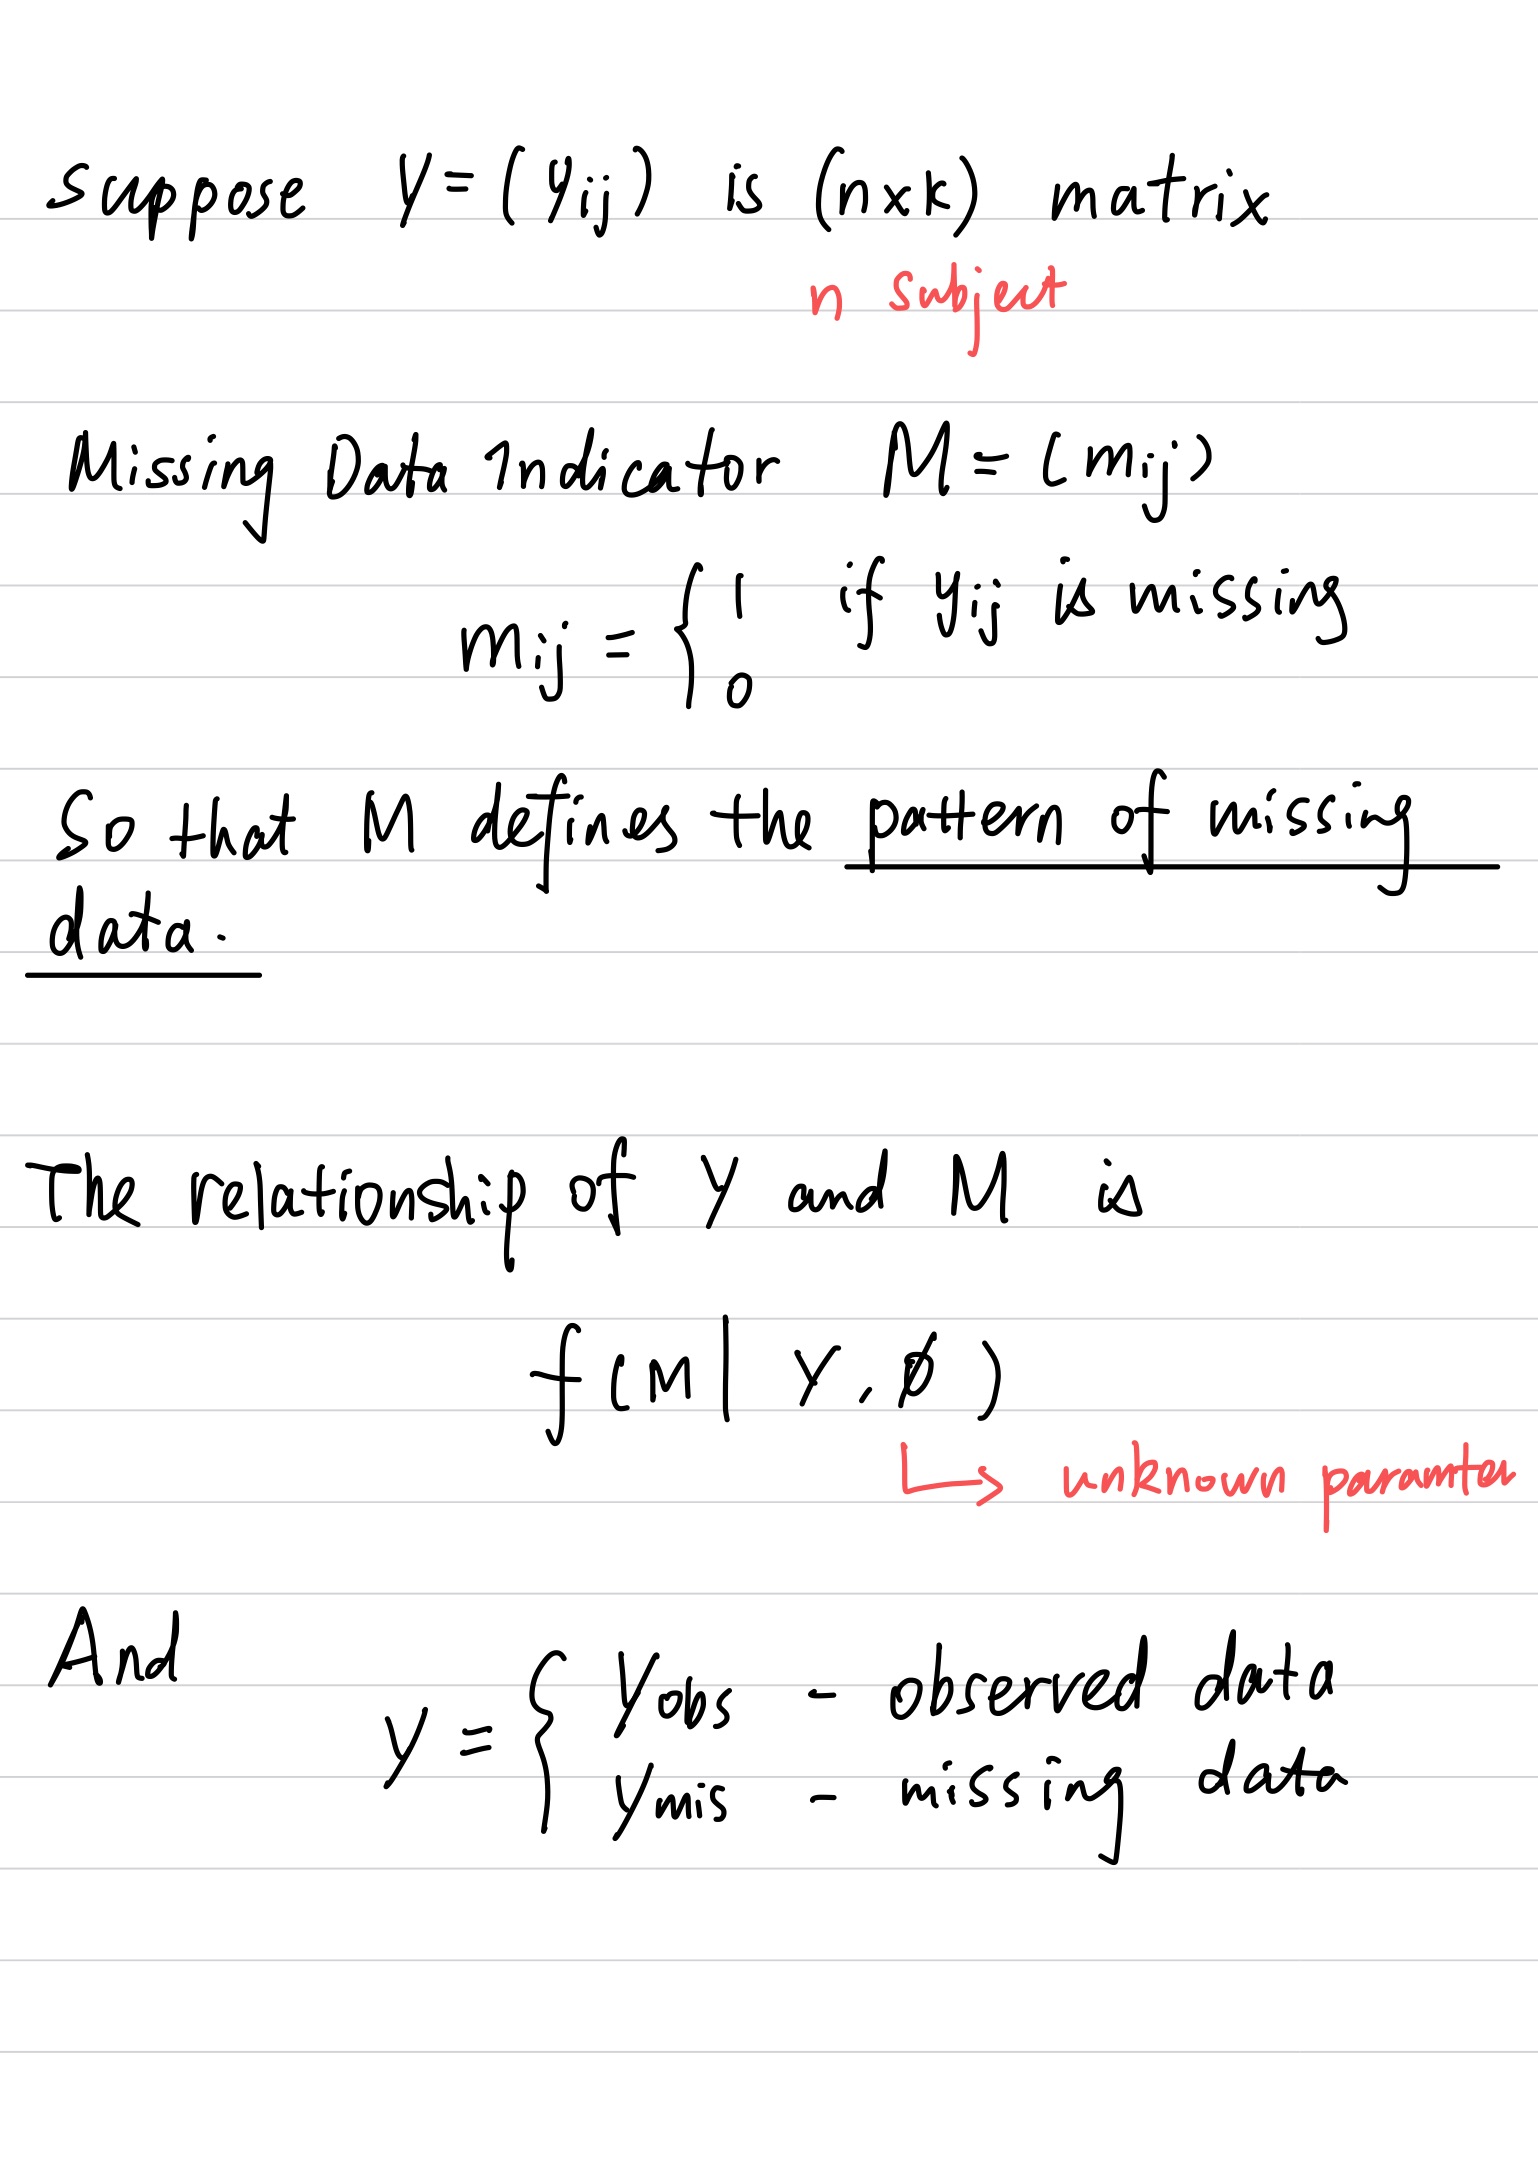 suppose Y = (yij) is (n×k) matrix
n subject
Missing Data Indicator M = (mij)
mij = { 1 if yij is missing
0
So that M defines the pattern of missing
data.
The relationship of Y and M is
f(M | Y, ϕ)
↳ unknown paramter
And
Y = { Yobs - observed data
Ymis - missing data